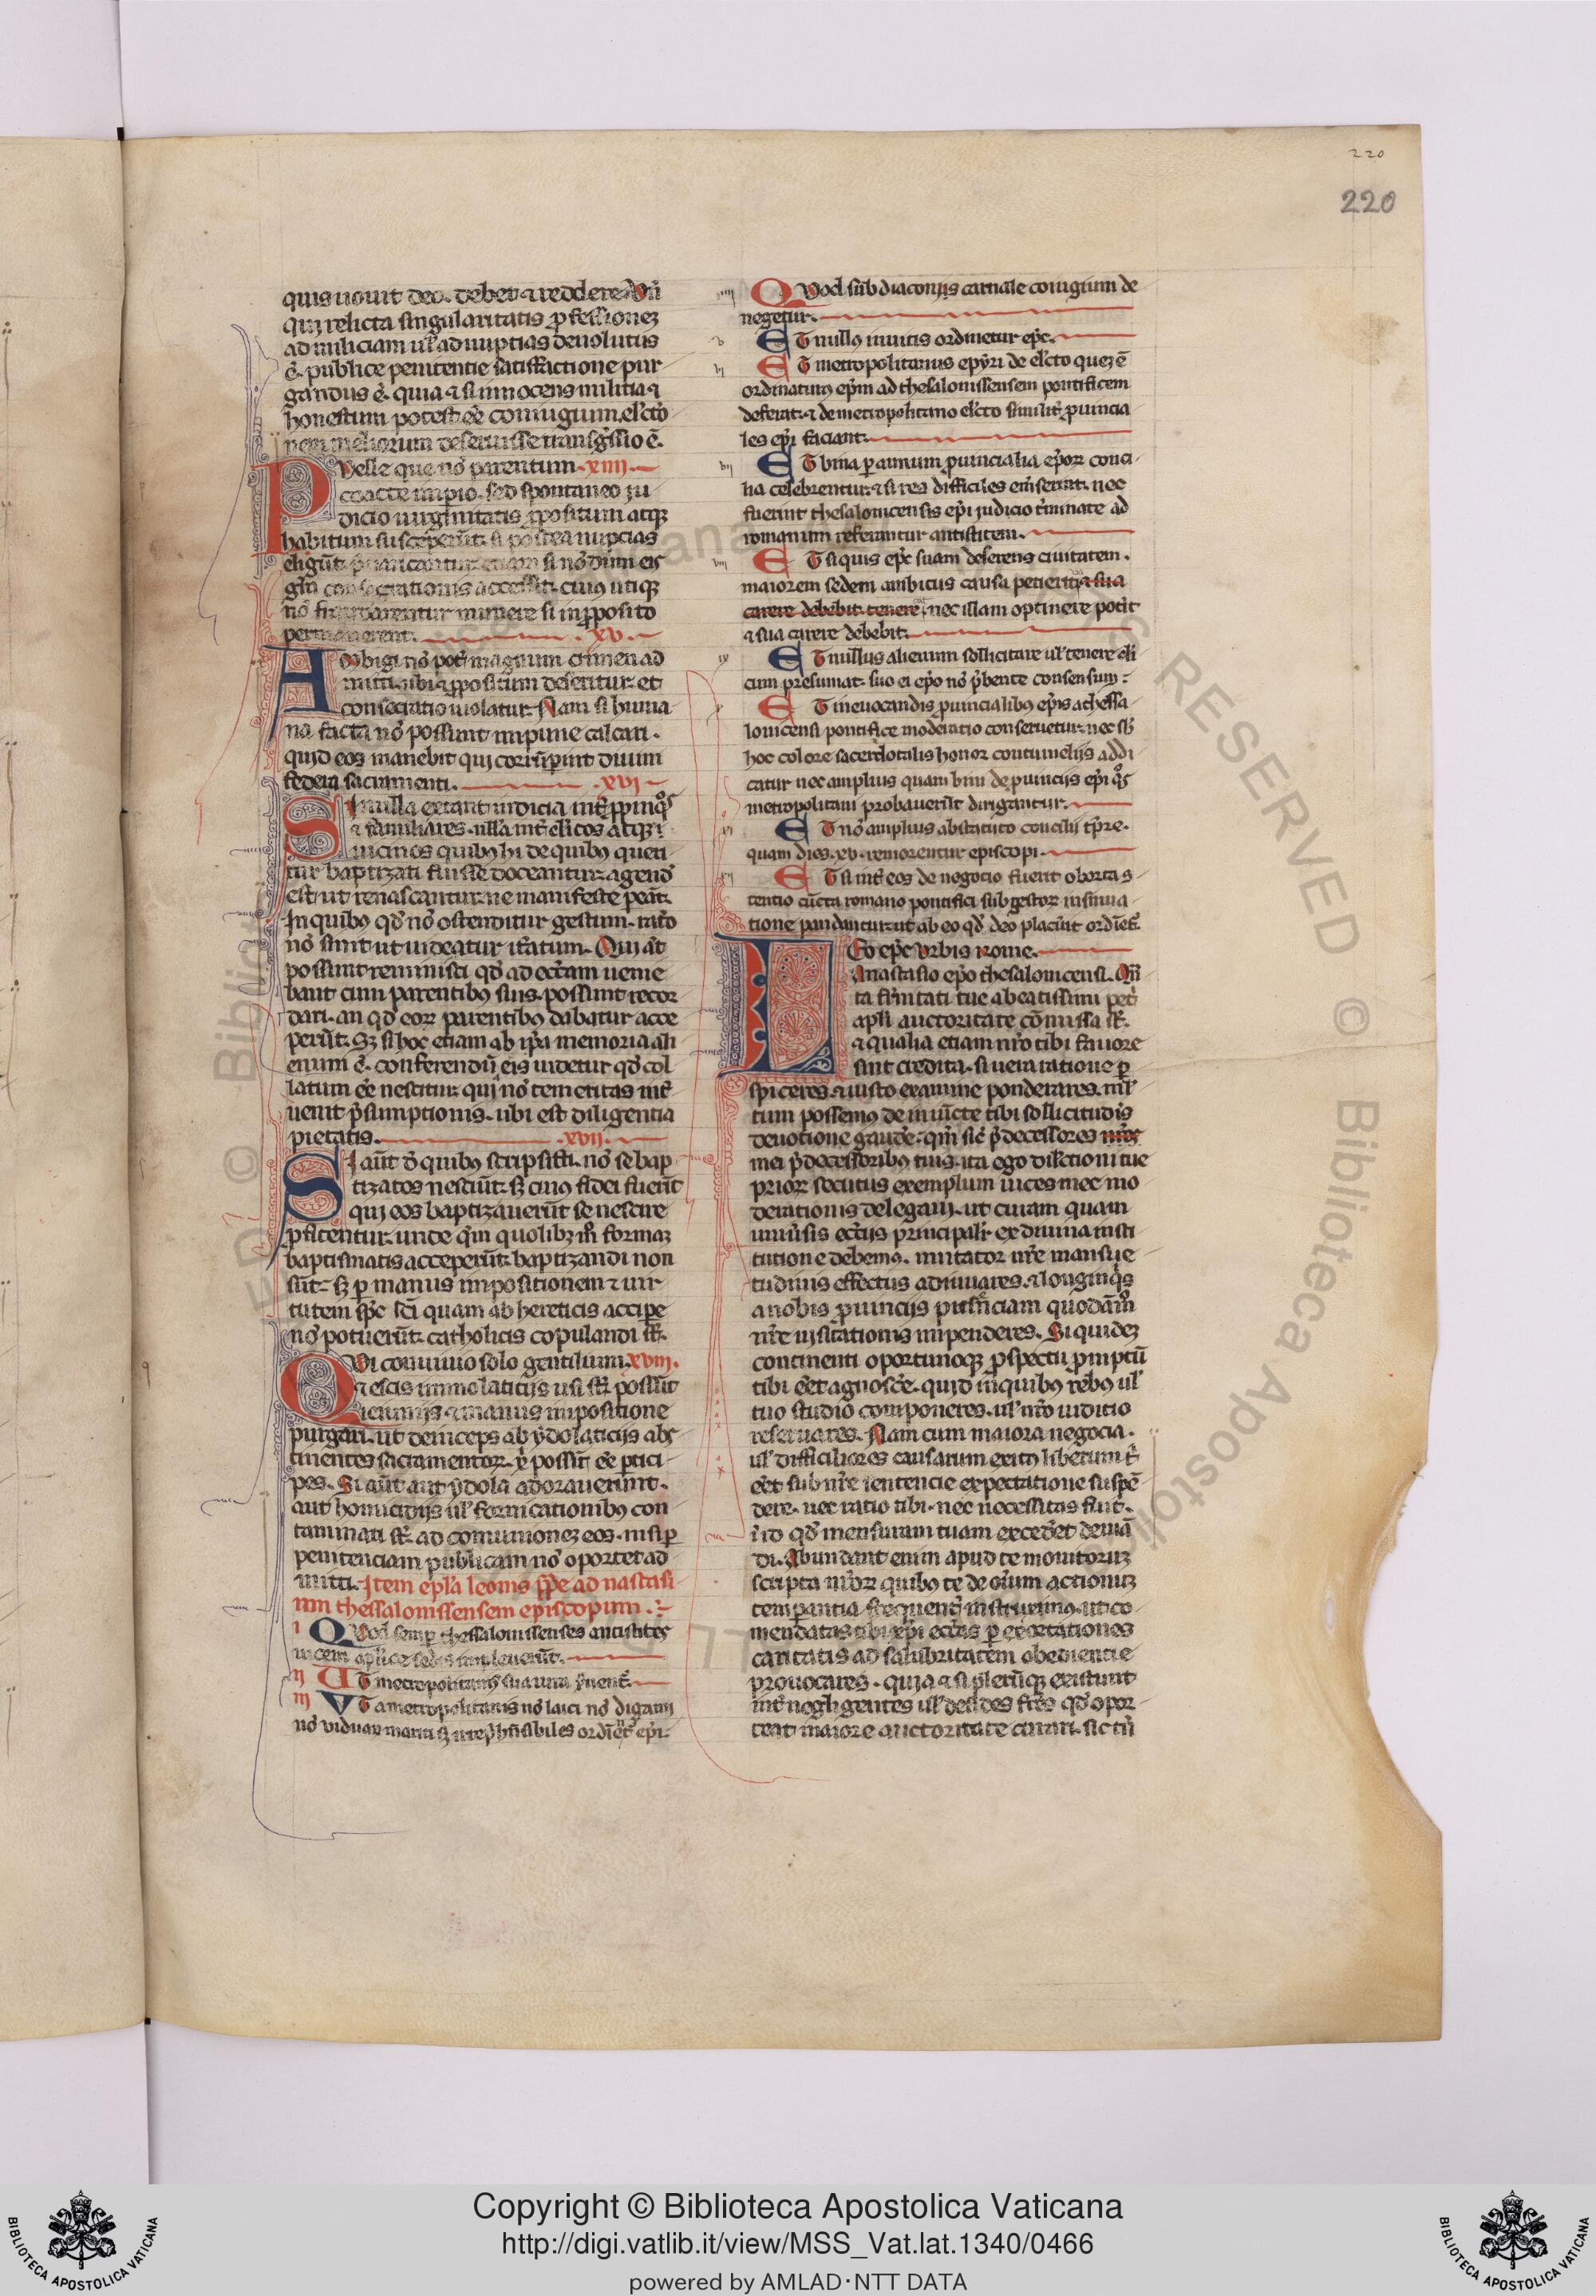 220
220
quis uouit deo. debet ⁊ reddere. Vn̄
qui relicta singularitatis ꝓfessionez
ad miliciam uł ad nuptias deuolutus
ē. publice penitentie satisfactione pur
gandus ē. quia ⁊ si innocens militia ⁊
honestum potest eē coniugium. elc̄to
nem meliorum deseruisse transgr̄ssio ē.
Puelle que nō parentum .xiiii.
coacte imperio. sed spontaneo iu
dicio uirginitatis ꝓpositum atqꝫ
habitum susceperūt. si postea nupcias
eligūt. p̄uaricantur. etiam si nōdum eis
gr̄a consecrationis accessit. cuiꝰ utiqꝫ
nō fraudarentur munere si in ꝓposito
permanerent. .xv.
Ambigi nō pot̄ magnum crimen ad
mitti. ubi ⁊ ꝓpositum deseritur. et
consecratio uiolatur. Nam si huma
na facta nō possunt impune calcari.
quid eos manebit qui corrūperint diuini
federa sacramenti. .xvi.
Si nulla extant iudicia int̄ ꝓpinqͦs
⁊ familiares. nulla int̄ cl̄icos atqꝫ
uicinos quibꝰ hi de quibꝰ queri
tur baptizati fuisse doceantur. agend̄
est ut renascantur. ne manifeste peāt.
In quibꝰ qd̄ nō ostenditur gestum. rat̄o
nō sinit ut uideatur it̄atum. Qui aūt
possunt reminisci qd̄ ad ecc̄iam uenie
bant cum parentibꝰ suis. possunt recor
dari. an qd̄ eoꝝ parentibꝰ dabatur acce
perūt. Sꝫ si hoc etiam ab ip̄a memoria ali
enum ē. conferendū eis uidetur qd̄ col
latum eē nescitur. qui nō temeritas int̄
uenit p̄sumptionis. ubi est diligentia
pietatis. .xvii.
Si aūt d̄ quibus scripsisti. nō se bap
tizatos nesciūt. sꝫ cuiꝰ fidei fuerūt
qui eos baptizauerūt se nescire
ꝓfitentur. unde qm̄ quolibꝫ mͦ formaꝫ
baptismatis acceperūt. baptizandi non
sūt. sꝫ ꝑ manus impositionem ⁊ uir
tutem sp̄c sc̄i quam ab hereticis accipe
nō potuerūt. catholicis copulandi st̄.
Qui conuiuio solo gentilium. xviii.
⁊ escis immolaticijs usi st̄. possūt
ieiunijs ⁊ manus impositione
purgari. ut deinceps ab ydolaticijs abs
tinentes sacramentoꝝ. x̄ possīt eē ꝑtici
pes. Si aūt aut ydola adorauerunt.
aut homicidijs uł fornicationibꝰ con
taminati st̄. ad comunionez eos. nisi ꝑ
penitenciam publicam nō oportet ad
mitti. Item ep̄la leonis pp̄e ad nastasi
um thessalonissensem episcopum.
i Quod semꝑ thessalonissenses antistites
uicem apl̄ice sedis impleuerūt.
ii Ut metropolitanus
iii Vt a metropolitanis nō laici nō digami
nō uiduaꝝ mariti sꝫ irrep̄hn̄sibiles ordīent̄ ep̄i.
iiii Quod subdiaconijs carnale coniugium de
negetur.
v Et nullꝰ inuitis ordinetur ep̄c.
vi Et metropolitanus ep̄y̅ri de elc̄to quez ē
ordinaturꝰ ep̄m ad thesalonissensem pontificem
deferat. ⁊ de metropolitano elc̄to similit̄ ꝓuincia
les ep̄i faciant.
vii Et bina ꝑ annum ꝓuincialia ep̄oꝝ conci
lia celebrentur. ⁊ si res difficiles em̄serint. nec
fuerint thesalonicensis ep̄i iudicio t̄minate ad
romanum referantur antistitem.
viii Et si quis ep̄c suam deserens ciuitatem.
maiorem sedem ambitus causa petierit ⁊ sua
carere debebit. tenere nec illam optinere potit
⁊ sua carere debebit.
ix Et nullus alienum sollicitare uł tenere cl̄i
cum presumat. suo ei ep̄o nō p̄bente consensum.
x Et in euocandis ꝓuincialibꝰ ep̄is a thessa
lonicensi pontifice moderatio conseruetur. nec sb̄
hoc colore sacerdotalis honor contumelijs addi
catur nec amplius quam bini de ꝓuincijs ep̄i qͦs
metropolitani probauerīt dirigantur.
xi Et nō amplius a bstatuto concilij tp̄re.
quam dies .xv. remorentur episcopi.
xii Et si int̄ eos de negocio fuerit oborta s
tentio cūcta romano pontifici sub gestoꝝ insinua
tione pandantur. ut ab eo qd̄ deo placūit ordīet̄.
LEo ep̄c vrbis rome.
Anastasio ep̄o thesalonicensi. Qn̄
ta fr̄nitati tue a beatissimi pet̄
apl̄i auctoritate cōmissa st̄.
⁊ qualia etiam nr̄o tibi fauore
sint credita. si uera ratione ꝑ
spiceres. ⁊ iusto examine ponderares. ml̄
tum possemꝰ de iniūcte tibi sollicitudīs
deuotione gaudē. qm̄ sic̄ p̄decessores nr̄os
mei p̄decessoribꝰ tuis. ita ego dil̄ctioni tue
prioꝝ secutus exemplum uices mee mo
derationis delegaui. ut curam quam
uniūsis ecc̄ijs principalit̄ ex diuina insti
tutione debemꝰ. imitator nr̄e mansue
tudinis effectus adiuuares. ⁊ longinqͥs
a nobis ꝓuincijs pr̄sn̄ciam quodāmͦ
nr̄e uisitationis impenderes. Siquidez
continenti oportunoqꝫ ꝓspectu ꝓmptū
tibi eēt agnosc̄e. quid in quibꝰ rebꝰ uł
tuo studio componeres. uł nr̄o iuditio
reseruares. Nam cum maiora negocia.
uł difficiliores causarum exitꝰ liberum t̄
eēt sub nr̄e sentencie expectatione suspē
dere. nec ratio tibi. nec necessitas fuit.
ī id qd̄ mensuram tuam exced̄et deuiā
di. Abundant enim apud te monitoruꝫ
scripta nr̄oꝝ quibꝰ te de oīum actionuꝫ
temꝑantia frequent̄ instruximꝰ. ut co
mendatas tibi xp̄i ecc̄ias ꝑ exortationes
caritatis ad salubritatem obedientie
prouocares. quia ⁊ si pleruqꝫ existunt
int̄ negligentes uł desides fr̄es qd̄ opor
teat maiore auctoritate curari. sic tn̄
Copyright © Biblioteca Apostolica Vaticana
http://digi.vatlib.it/view/MSS_Vat.lat.1340/0466
powered by AMLAD·NTT DATA
BIBLIOTECA APOSTOLICA VATICANA
BIBLIOTECA APOSTOLICA VATICANA